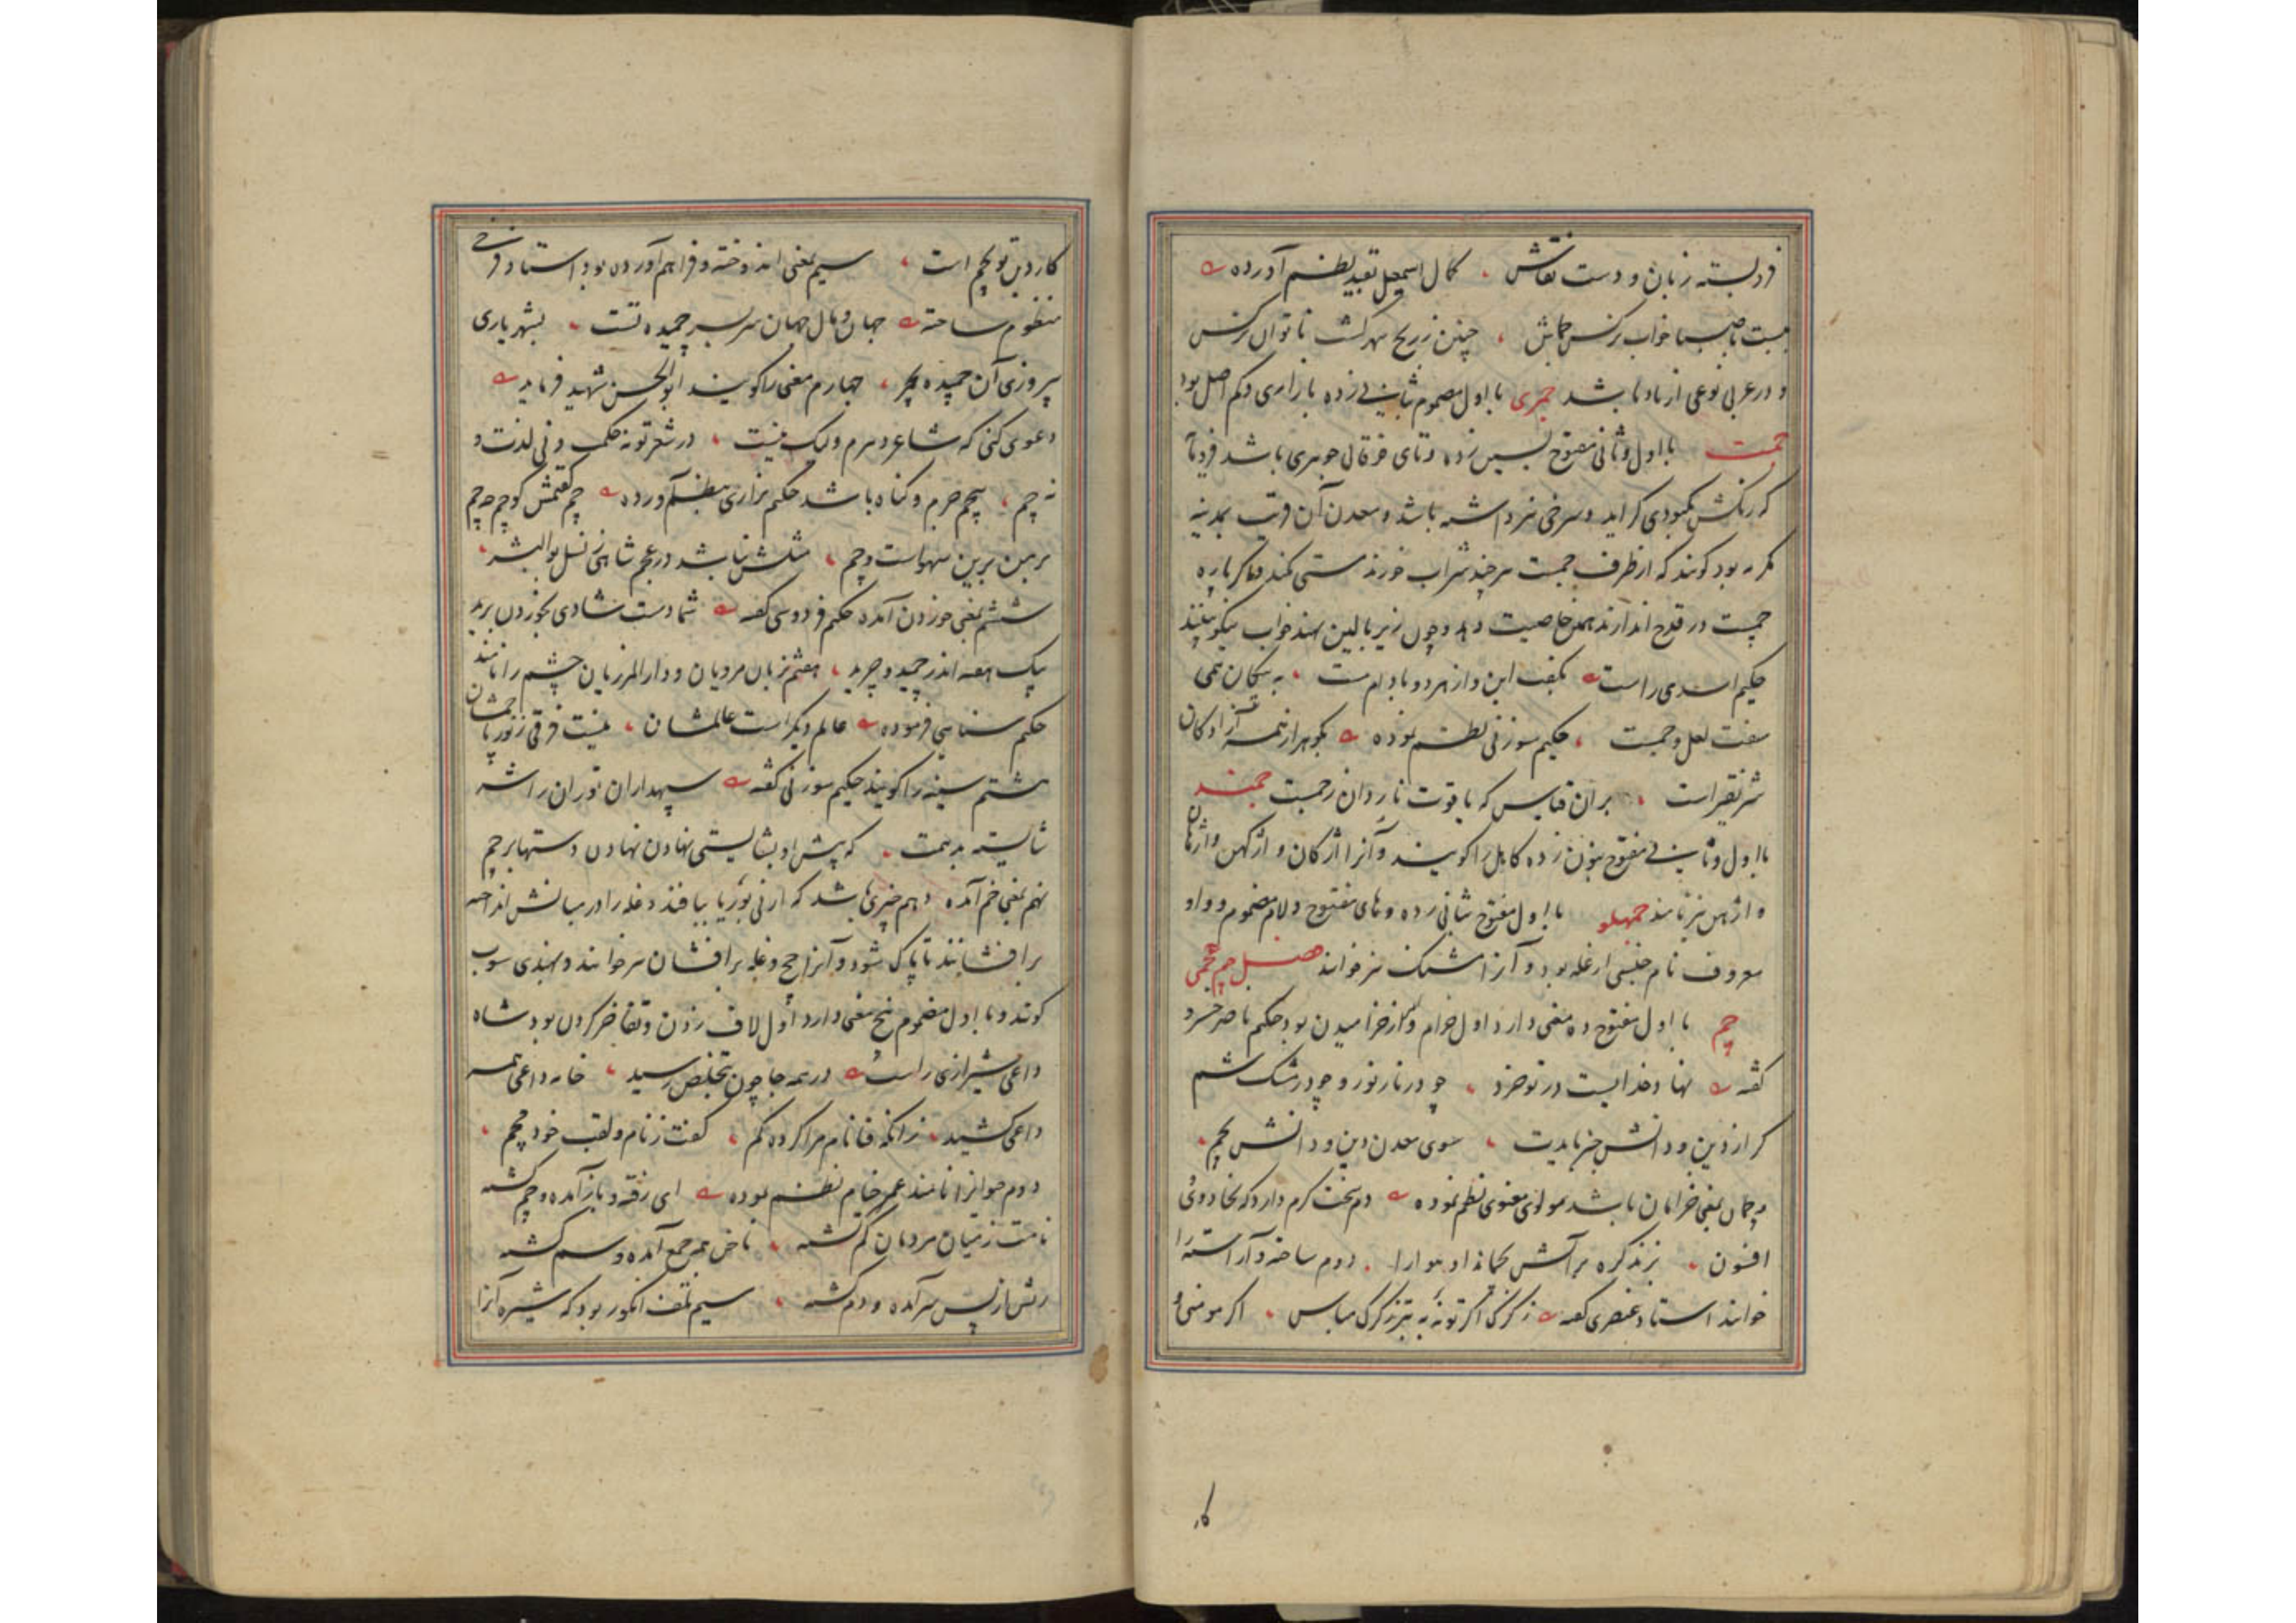 فرو بسته زبان و دست نقاش کمال اسمعیل بقید نظم آورده
خواب نرگس چنین زریح نرگس
و در عربی نوعی از بادها باشد جمری با اول مضموم بثانی زده بازاری و کم اصل بود
جمست با اول و ثانی مفتوح بسین زده و تای فوقانی جوهری باشد فرومایه
که رنگش بکبودی گراید و سرخی نیز داشته باشد و معدن آن قریب بمدینه
مکرمه بود گویند که از ظرف جمست هر چند شراب خورند مستی نکند و اگر پاره
جمست در قدح اندازند همین خاصیت دهد و چون زیر بالین نهند خواب نیکو بینند
حکیم اسدی راست بگفت این و از هر دو بادام مست به پیکان همی
سفت لعل و جمست حکیم سوزنی نظم نموده بگوهر از همه آزادگان
شریفتر است بر آن قیاس که یاقوت نار دان ز جمست جمند
با اول و ثانی مفتوح بنون زده کاهل را گویند و آنرا اژکان و اژکهن و اژهان
و اژهن نیز نامند جمهلو با اول مفتوح بثانی زده و های مفتوح و لام مضموم و واو
معروف نام جنسی از غله بود و آنرا مشنگ نیز خوانند فصل جیم عجمی
چم با اول مفتوح ده معنی دارد اول خرام و از خرامیدن بود حکیم ناصر خسرو
گفته نهاد خدایست در تو خرد چو در نار نور و چو در مشک شم
گر از دین و دانش چرا بایدت سوی معدن دین و دانش بچم
و چمان بمعنی خرامان باشد مولوی معنوی نظم نموده دم سخت گرم دارد که بجادوئی
افسون بزند گره بر آتش بچماند او هوا را دوم ساخته و آراسته را
خوانند استاد عنصری گفته ز گرگی اگر تو نه به تیز گرگ مباس اگر مومنی و
کار
کار دین تو بچم است سیم بمعنی اندوخته و فراهم آورده بود استاد فرخی
منظوم ساخته جهان و مال جهان سر بسر چمیده تست بشهریاری
پیروزی آن چمیده بچر چهارم معنی را گویند ابوالحسن شهید فرماید
دعوی کنی که شاعر دهرم ولیک نیست در شعر تو نه حکمت و نی لذت و
نه چم پنجم جرم و گناه باشد حکیم نزاری بنظم آورده چم گفتمش کو چم چه چم
بر من برین سهوست و چم مثلش نباشد در عجم شاهی ز نسل بوالبشر
ششم بمعنی خوردن آمده حکیم فردوسی گفته شما دست شادی بخوردن برید
یک هفته اندر چمید و چرید هفتم زبان مردیان و دارالمرزیان چشم را نامند
حکیم سنائی فرموده عالم دیگر است عالمشان نیست فرقی ز نور تا چمشان
هشتم سینه را گویند حکیم سوزنی گفته سپهداران توران را شه
شایسته بدهمت که پیش او بشایستی نهادن نهادن دستها بر چم
نهم بمعنی خم آمده دهم چیزی باشد که از نی بوریا ببافند و غله را در میانش انداخته
بر افشانند تا پاک شود و آنرا چچ و غله بر افشان نیز خوانند و بهندی سوپ
گویند و با اول مضموم پنج معنی دارد اول لاف زدن و تفاخر کردن بود شاه
داعی شیرازی راست در همه جا چون بتخلص رسید خامه داعی همه
داعی کشید زانکه فنا نام مرا کرده گم گفت ز نام و لقب خود مچم
دوم حیوانرا نامند عمر خیام نظم نموده ای رفته و باز آمده و چم گشته
نامت ز میان مردمان گم گشته ناخن همه جمع آمده و سم گشته
ریش از پس سر آمده و دم گشته سیم بلغت انگور بود که شیره آنرا